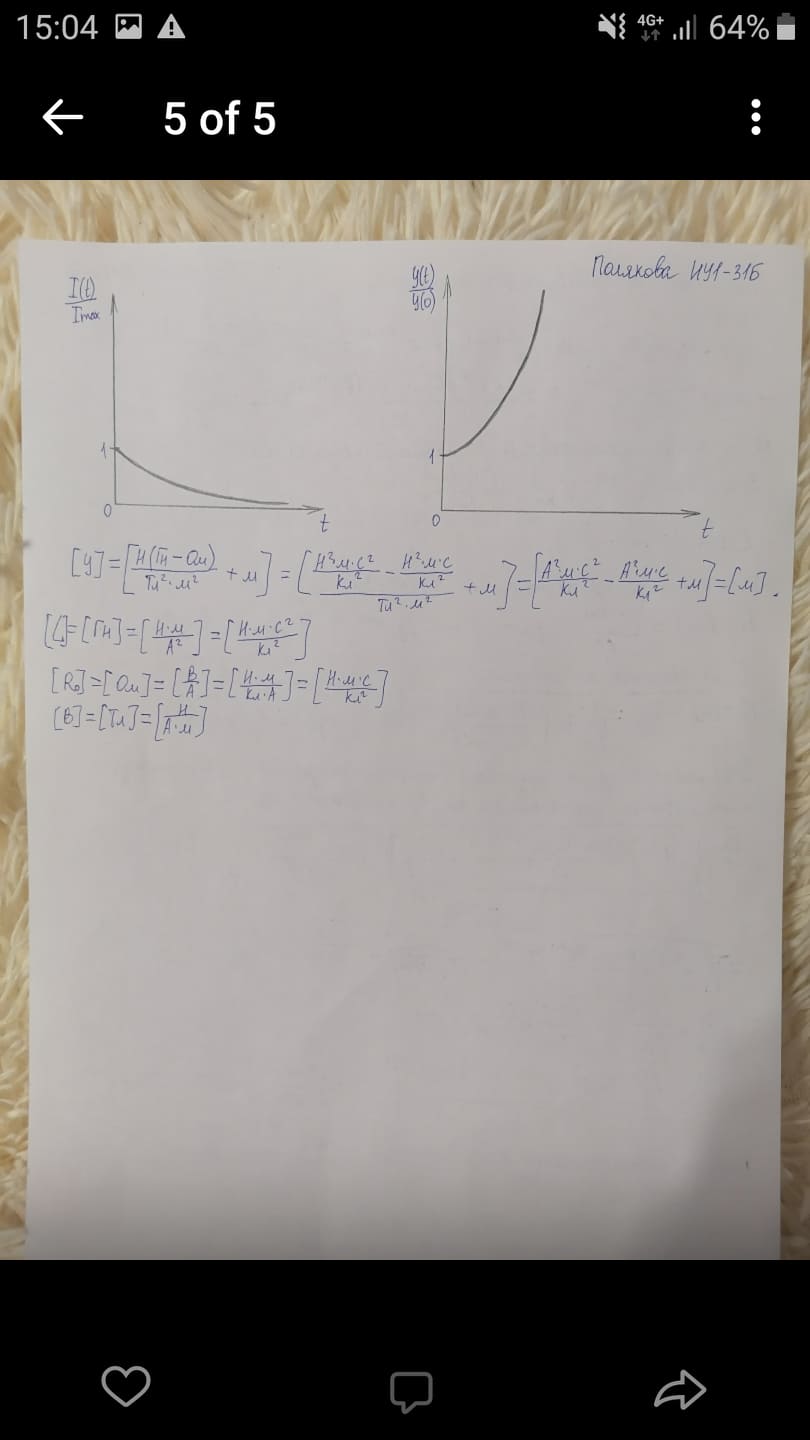 15:04 4G+ 64%
5 of 5
Полякова ИУ1-31Б
I(t)/Imax
y(t)/y(0)
1
1
0 t
0 t
[y]=[H(Гн-Ом)/Тл²·м² + м] = [(H²м·с²/Кл² - H²·м·с/Кл²)/Тл²·м² + м]=[А²м·с²/Кл² - А²м·с/Кл² +м]=[м].
[L]=[Гн]=[Н·м/А²]=[Н·м·с²/Кл²]
[R₀]=[Ом]=[В/А]=[Н·м/Кл·А]=[Н·м·с/Кл²]
[B]=[Тл]=[Н/А·м]